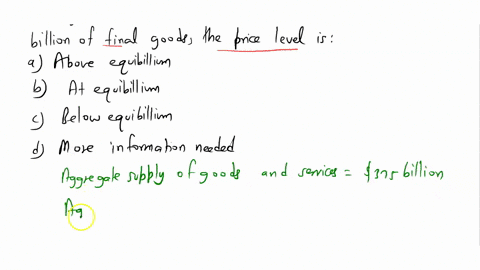 billion of final goods, the price level is:
a) Above equibillium
b) At equibillium
c) Below equibillium
d) More information needed
Aggregate supply of goods and services = $375 billion
Ag